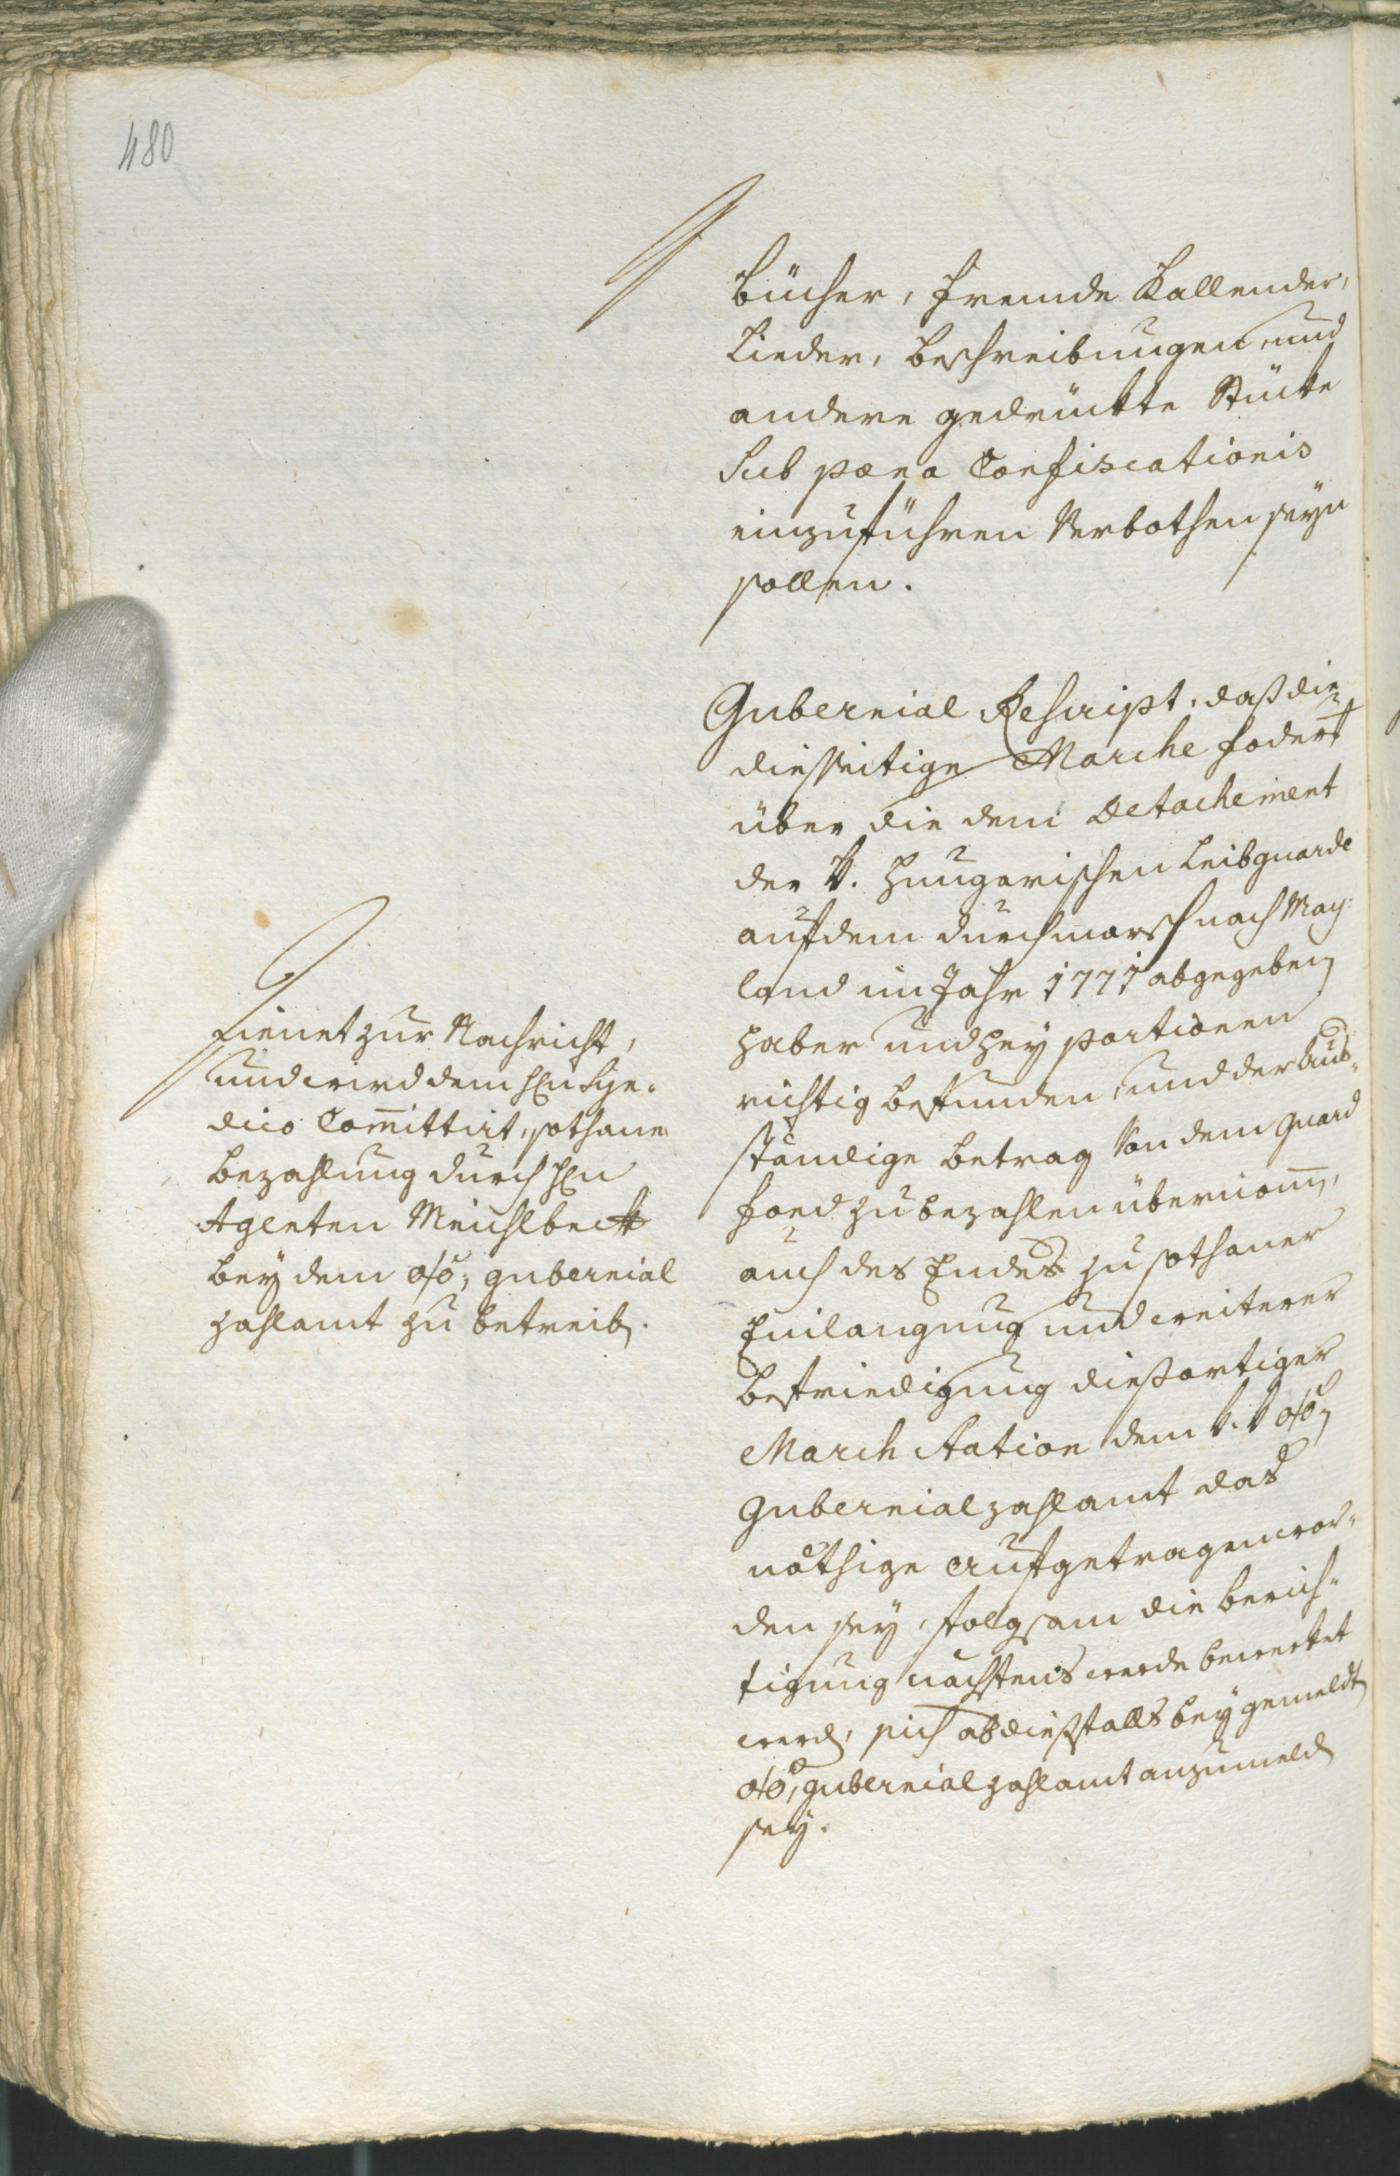 480
Bücher, fremde Kallender,
Lieder, Beschreibungen und
andere gedruckte Stücke
Sub pœna Confiscationis
einzuführen Verbothen seyn
sollen.
Gubernial Rescript, daß die
diesseitige Marche foders
über die dem Detachement
der K. Hungarischen Leibguarde
auf dem Durchmarsch nach May:
land im Jahr 1771 abgegeben
Haber und Hey portionen
richtig befunden, und der Aus-
ständige Betrag Von dem Guard
fond zu bezahlen übernom,
auch des Endes zu sothaner
Einlangung und weiterer
Befriedigung diesortiger
March Station dem k. k. o/ö
Gubernialzahlamt das
nöthige aufgetragen wor-
den sey, folgsam die Berich-
tigung nächstens werde bewerket
werd, sich ab diesfalls bey gemeldt
o/ö, gubernial zahlamt anzumeld
sey.
Dienet zur Nachricht,
und wird dem Hn Syn-
dico Committirt, sothane
Bezahlung durch Hn
Agenten Meichlbeck
bey dem o/ö, gubernial
zahlamt zu betreib.